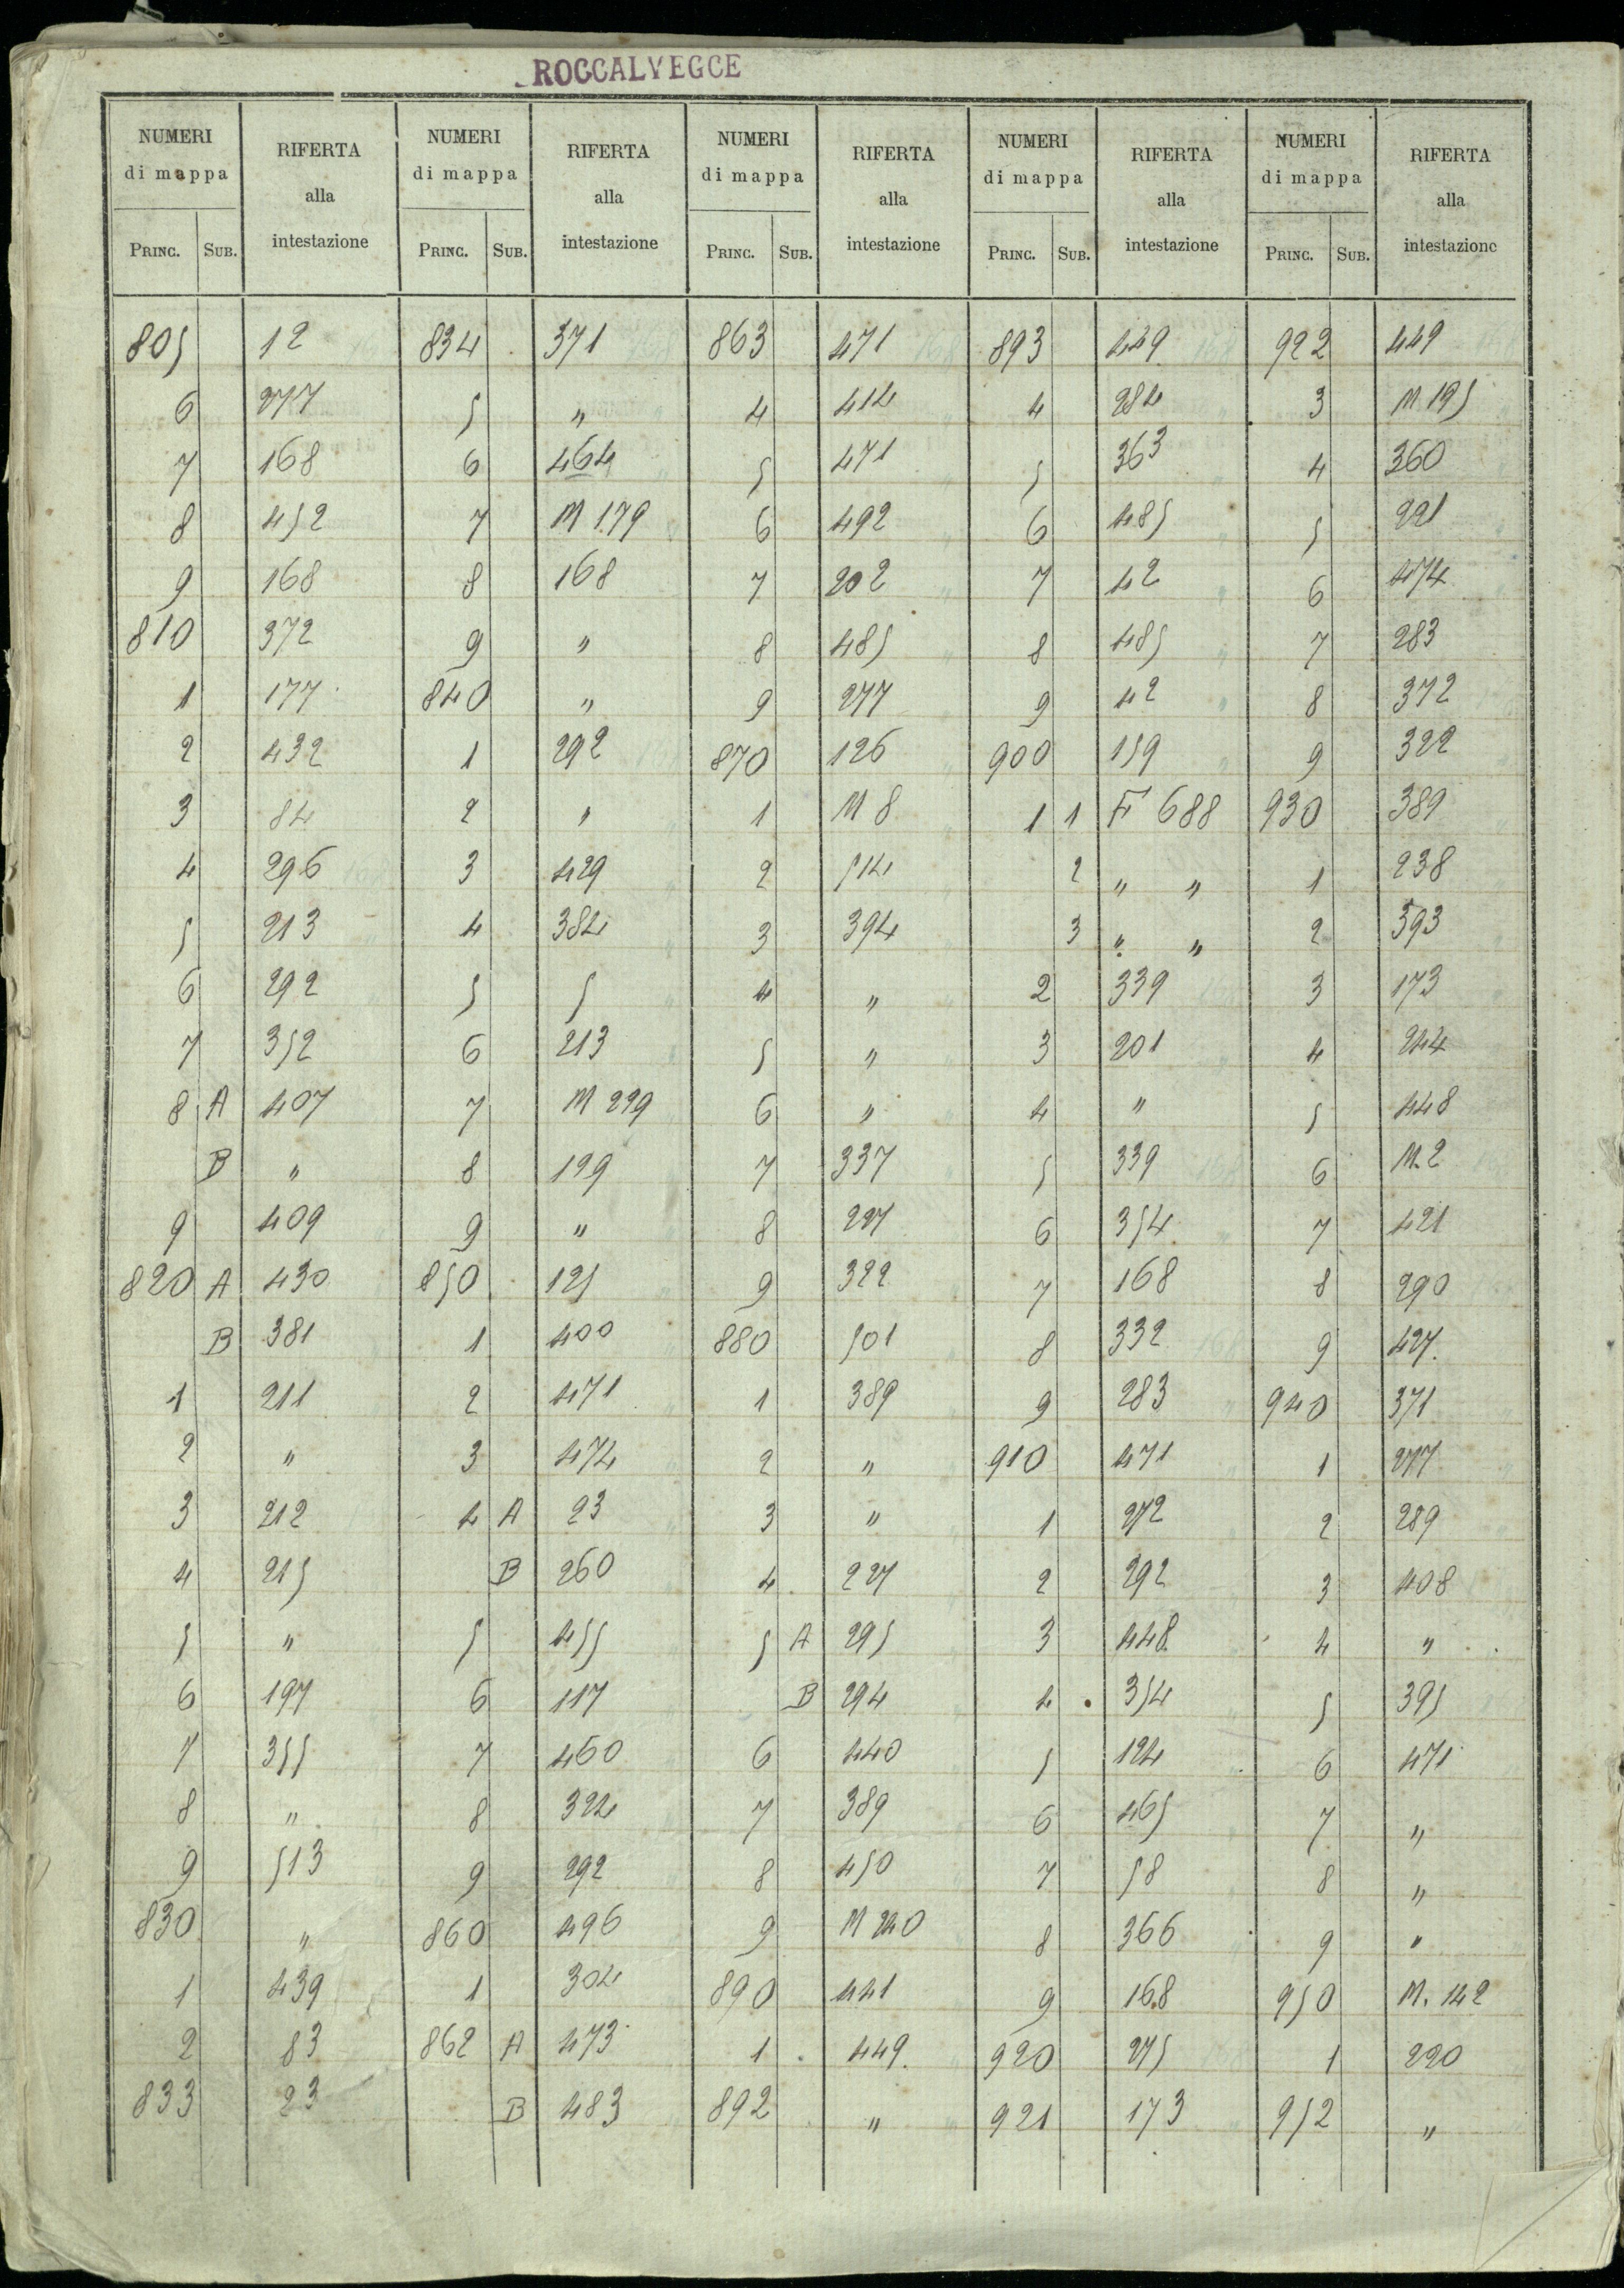 ROCCALVECCE
NUMERI di mappa | RIFERTA alla intestazione | NUMERI di mappa | RIFERTA alla intestazione | NUMERI di mappa | RIFERTA alla intestazione | NUMERI di mappa | RIFERTA alla intestazione | NUMERI di mappa | RIFERTA alla intestazione
PRINC. | SUB. | PRINC. | SUB. | PRINC. | SUB. | PRINC. | SUB. | PRINC. | SUB.
805 | 12 | 834 | 371 | 863 | 471 | 893 | 449 | 922 | 449
6 | 277 | 5 | " | 4 | 414 | 4 | 284 | 3 | M 195
7 | 168 | 6 | 464 | 5 | 471 | 5 | 363 | 4 | 360
8 | 452 | 7 | M 179 | 6 | 492 | 6 | 485 | 5 | 221
9 | 168 | 8 | 168 | 7 | 202 | 7 | 42 | 6 | 474
810 | 372 | 9 | " | 8 | 485 | 8 | 485 | 7 | 283
1 | 177 | 840 | " | 9 | 277 | 9 | 42 | 8 | 372
2 | 432 | 1 | 292 | 870 | 126 | 900 | 159 | 9 | 322
3 | 84 | 2 | " | 1 | M 8 | 1 | 1 | F 688 | 930 | 389
4 | 296 | 3 | 429 | 2 | 514 | 2 | " " | 1 | 238
5 | 213 | 4 | 384 | 3 | 394 | 3 | " " | 2 | 393
6 | 292 | 5 | 5 | 4 | " | 2 | 339 | 3 | 173
7 | 352 | 6 | 213 | 5 | " | 3 | 201 | 4 | 244
8 | A | 407 | 7 | M 229 | 6 | " | 4 | " | 5 | 448
B | " | 8 | 129 | 7 | 337 | 5 | 339 | 6 | M. 2
9 | 409 | 9 | " | 8 | 227 | 6 | 354 | 7 | 421
820 | A | 430 | 850 | 125 | 9 | 322 | 7 | 168 | 8 | 290
B | 381 | 1 | 400 | 880 | 501 | 8 | 332 | 9 | 427
1 | 211 | 2 | 471 | 1 | 389 | 9 | 283 | 940 | 371
2 | " | 3 | 474 | 2 | " | 910 | 471 | 1 | 277
3 | 212 | 4 | A | 23 | 3 | " | 1 | 272 | 2 | 289
4 | 215 | B | 260 | 4 | 227 | 2 | 292 | 3 | 408
5 | " | 5 | 455 | 5 | A | 295 | 3 | 448 | 4 | "
6 | 197 | 6 | 117 | B | 294 | 4 | 354 | 5 | 395
7 | 355 | 7 | 460 | 6 | 440 | 5 | 124 | 6 | 471
8 | " | 8 | 324 | 7 | 389 | 6 | 465 | 7 | "
9 | 513 | 9 | 292 | 8 | 450 | 7 | 58 | 8 | "
830 | " | 860 | 496 | 9 | M 240 | 8 | 366 | 9 | "
1 | 439 | 1 | 304 | 890 | 441 | 9 | 168 | 950 | M. 142
2 | 83 | 862 | A | 473 | 1 | 449 | 920 | 275 | 1 | 220
833 | 23 | B | 483 | 892 | " | 921 | 173 | 952 | "